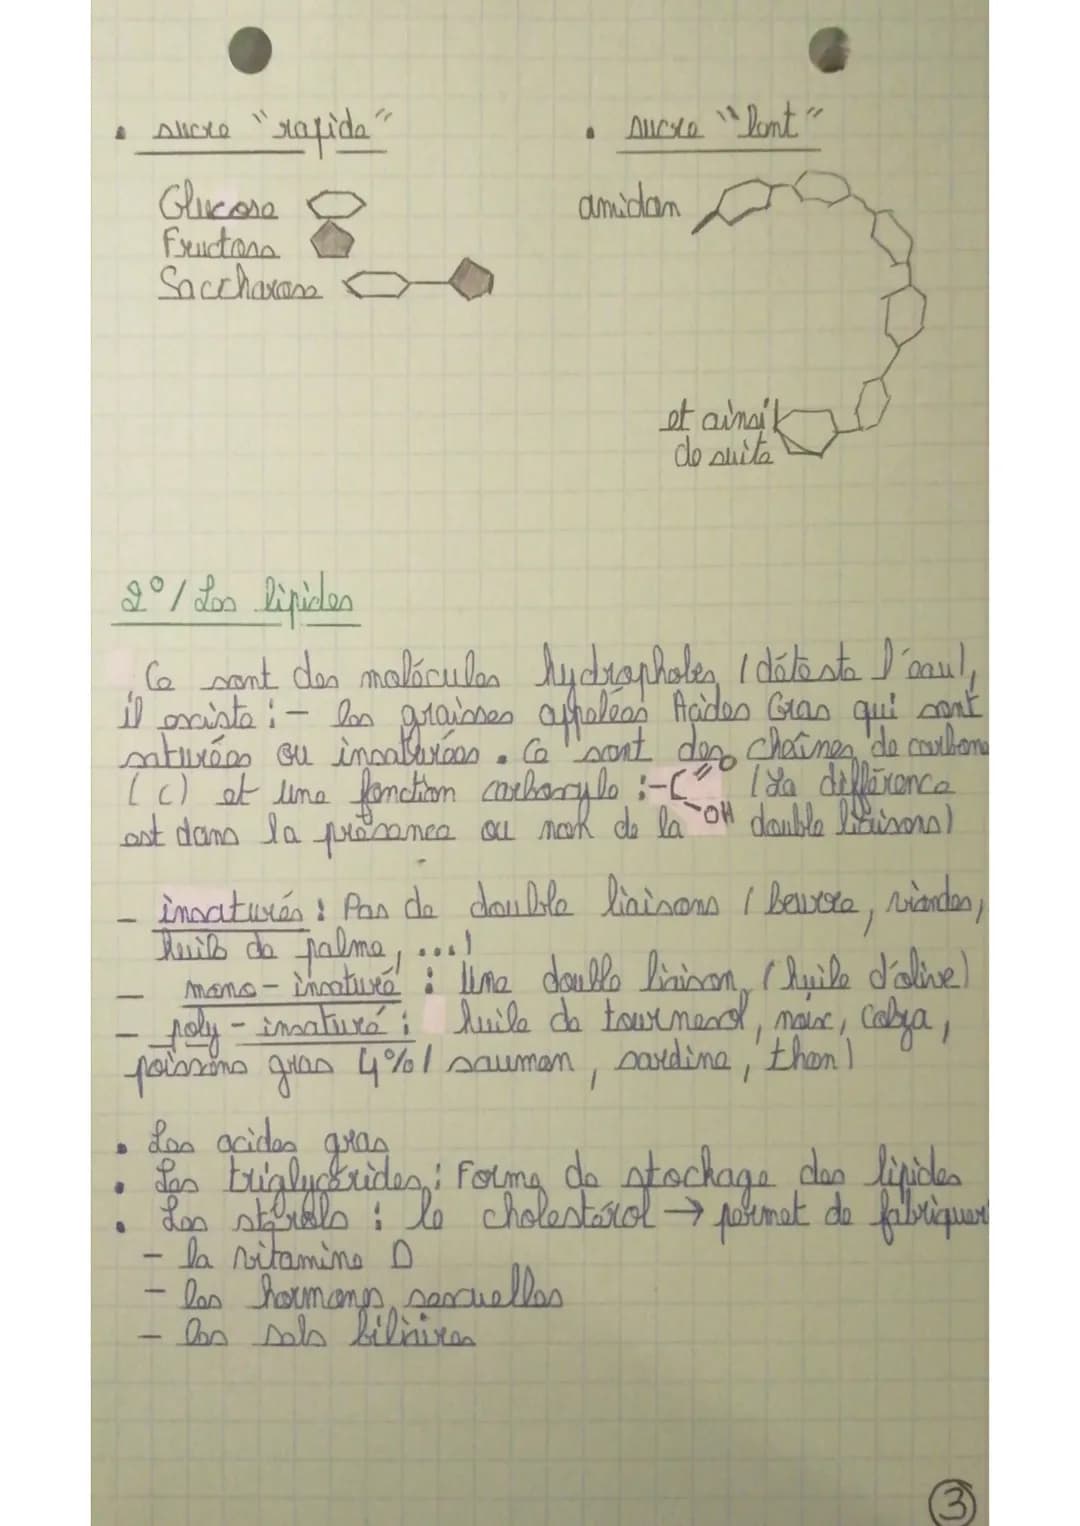 • sucre "rapide"
• sucre "lent"
Glucose
Fructose
Saccharose
amidon
et ainsi
de suite
2°/ Les lipides
Ce sont des molécules hydrophobes (déteste l'eau),
il existe : - les graisses appelées Acides Gras qui sont
saturées ou insaturées. Ce sont des chaînes de carbone
(C) et une fonction carboxyle : -C=O -OH (La différence
est dans la présence ou non de la double liaisons)
- insaturés : Pas de double liaisons (beurre, viandes,
huile de palme, ...)
- mono-insaturé : Une double liaison (huile d'olive)
- poly-insaturé : huile de tournesol, noix, Colza,
poissons gras 4% (saumon, sardine, thon)
• Les acides gras
• Les triglycérides : Forme de stockage des lipides
• Les stérols : le cholestérol → permet de fabriquer
- la vitamine D
- les hormones sexuelles
- les sels biliaires
3